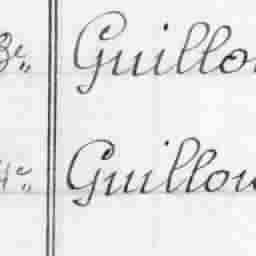 3e" Guillou
4e" Guillou